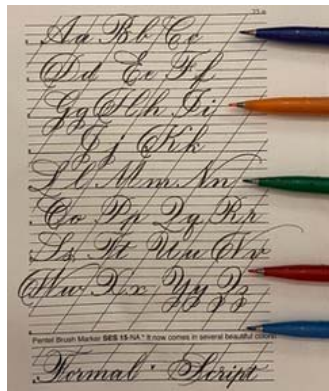 Aa Bb Cc
Dd Ee Ff
Gg Hh Ii
Jj Kk
Ll Mm Nn
Oo Pp Qq Rr
Ss Tt Uu Vv
Ww Xx Yy Zz
Pentel Brush Marker SES 15-NA * It now comes in several beautiful colors
Formal • Script